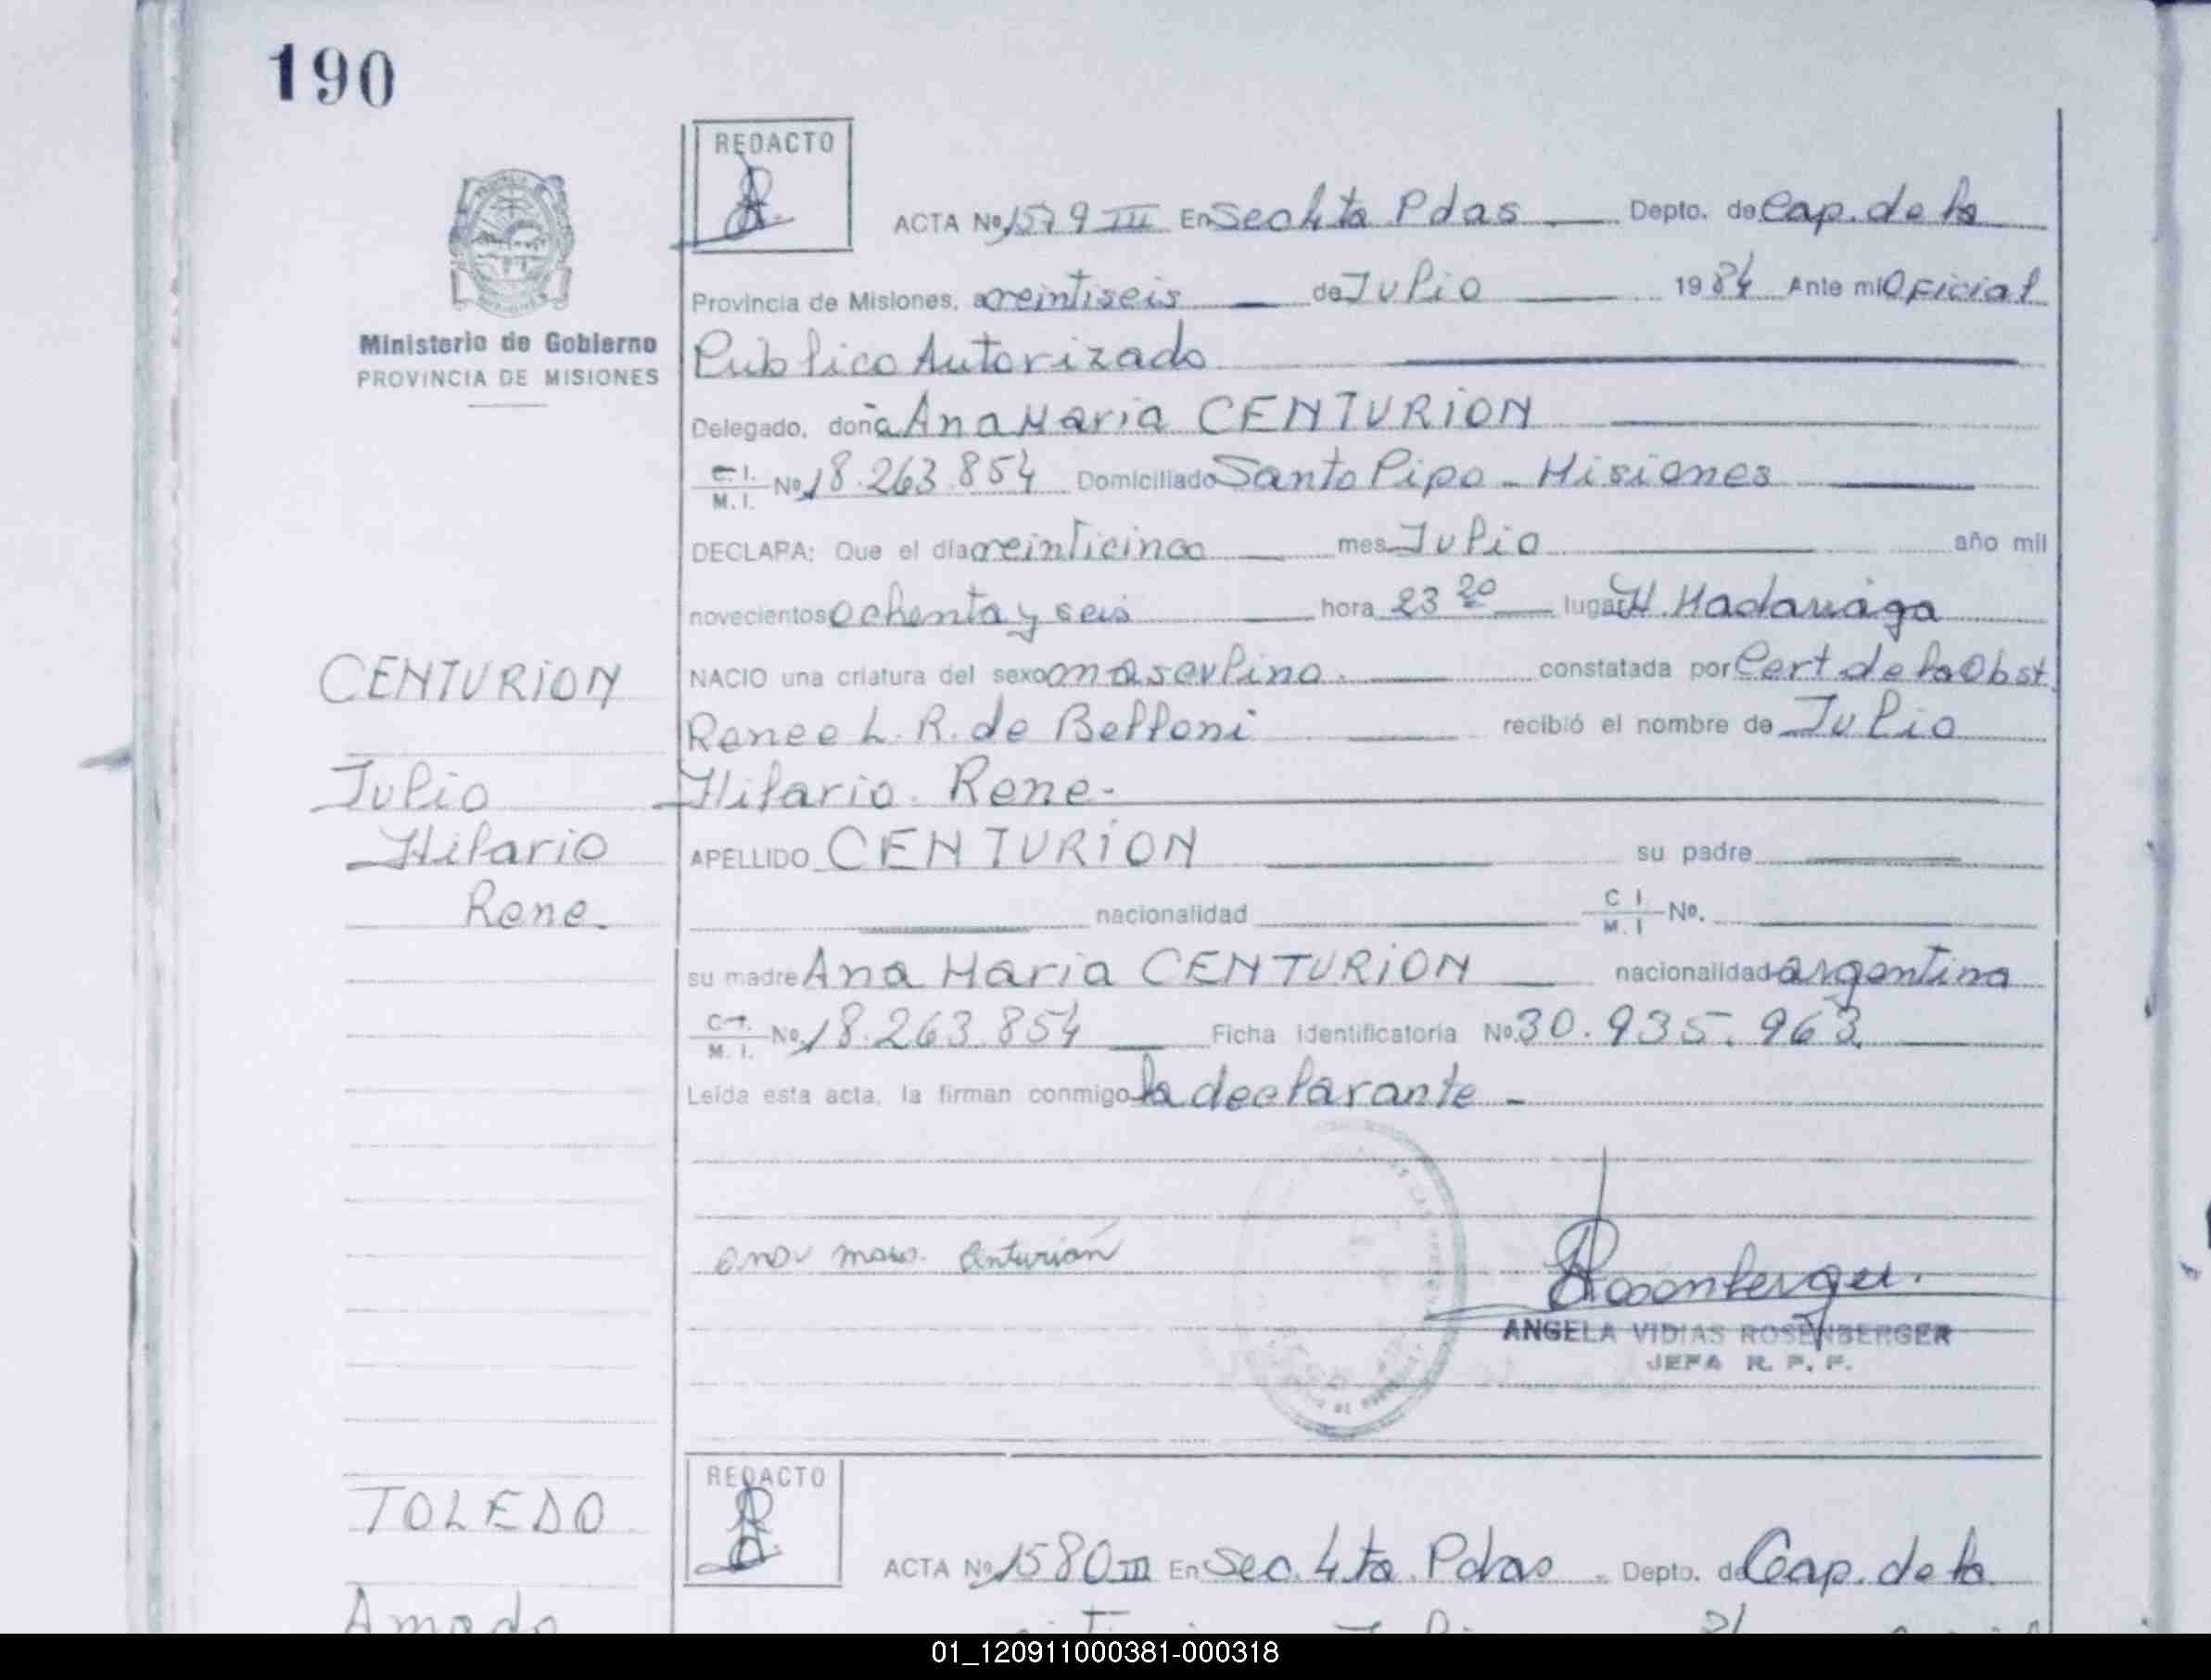 190
REDACTO
ACTA Nº 1579 III En Sec 4ta Pdas Depto. de Cap. de la
Provincia de Misiones, a veintiseis de Julio 1984 Ante mi Oficial
Publico Autorizado
Ministerio de Gobierno
PROVINCIA DE MISIONES
Delegado, doña Ana Maria CENTURION
C.I. M.I. Nº 18.263.854 Domiciliado Santo Pipo - Misiones
DECLARA: Que el día veinticinco mes Julio año mil
novecientos ochenta y seis hora 23 20 lugar H. Madariaga
NACIO una criatura del sexo masculino. constatada por Cert de la Obst.
Renee L. R. de Belloni recibió el nombre de Julio
Hilario Rene.
APELLIDO CENTURION su padre
nacionalidad C I M. I Nº.
su madre Ana Maria CENTURION nacionalidad argentina
C.I. M.I. Nº 18.263.854 Ficha identificatoria Nº 30.935.963
Leída esta acta, la firman conmigo la declarante -
CENTURION
Julio
Hilario
Rene.
Centurión
Rosenberger.
ANGELA VIDIAS ROSENBERGER
JEFA R. P. P.
TOLEDO
Amado
REDACTO
ACTA Nº 1580 III En Sec. 4ta. Pdas - Depto. de Cap. de la
01_120911000381-000318